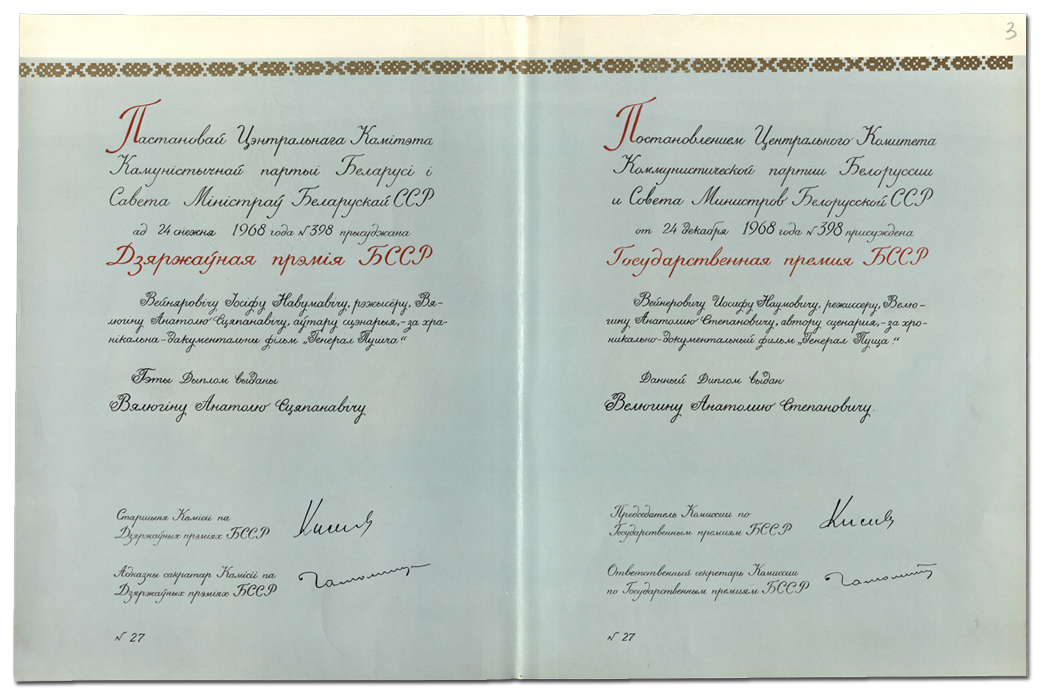 3
Пастановай Цэнтральнага Камітэта
Камуністычнай партыі Беларусі і
Савета Міністраў Беларускай ССР
ад 24 снежня 1968 года № 398 прысуджана
Дзяржаўная прэмія БССР
Вейняровічу Іосіфу Навумавічу, рэжысёру, Вя-
люгіну Анатолю Сцяпанавічу, аўтару сцэнарыя,-за хра-
нікальна-дакументальны фільм „Генерал Пушча“
Гэты Дыплом выданы
Вялюгіну Анатолю Сцяпанавічу
Старшыня Камісіі па
Дзяржаўных прэміях БССР
Адказны сакратар Камісіі па
Дзяржаўных прэміях БССР
№ 27
Постановлением Центрального Комитета
Коммунистической партии Белоруссии
и Совета Министров Белорусской ССР
от 24 декабря 1968 года № 398 присуждена
Государственная премия БССР
Вейнеровичу Иосифу Наумовичу, режиссеру, Велю-
гину Анатолию Степановичу, автору сценария,-за хро-
никально-документальный фильм „Генерал Пуща“
Данный Диплом выдан
Велюгину Анатолию Степановичу.
Председатель Комиссии по
Государственным премиям БССР
Ответственный секретарь Комиссии
по Государственным премиям БССР
№ 27